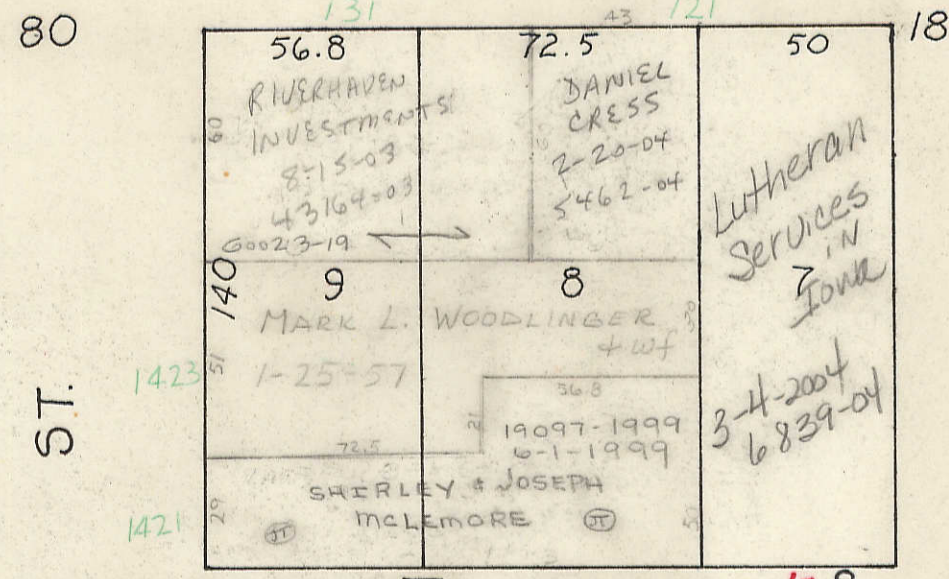 131
43
121
80
18
56.8
72.5
50
RIVERHAVEN
INVESTMENTS
8-15-03
43164-03
G0023-19
60
DANIEL
CRESS
2-20-04
5462-04
Lutheran
Services
in
7
Iowa
3-4-2004
6839-04
140
9
8
MARK L. WOODLINGER
+ wf
1-25-57
1423
51
56.8
21
19097-1999
6-1-1999
72.5
SHIRLEY & JOSEPH
McLEMORE
JT
JT
29
1421
ST.